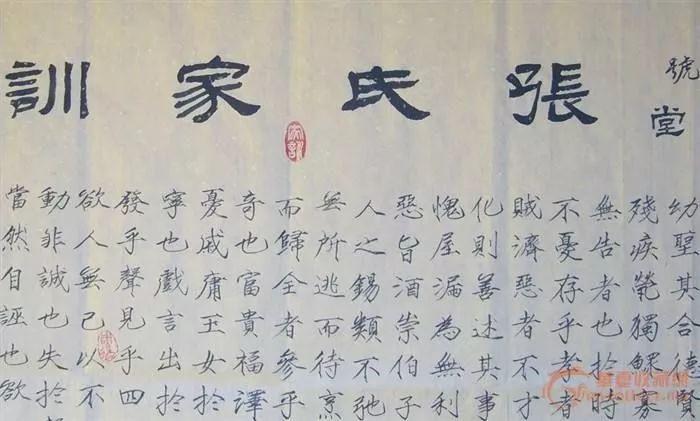 號堂
張氏家訓
幼聖其合德賢
殘疾煢獨鰥寡
無告者也於時
不憂存乎孝者
賊濟惡者不才
化則善述其事
愧屋漏為無利
惡旨酒崇伯子
人之錫類不弛
無所逃而待烹
而歸全者參乎
奇也富貴福澤
憂戚庸玉女於
寧也戲言出於
發乎聲見乎四
欲人無己以不
動非誠也失於
當然自誣也欲
華夏收藏网